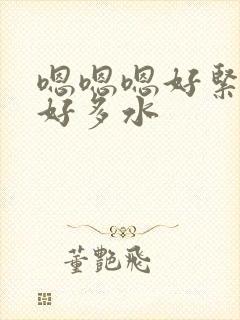 嗯嗯嗯好緊
好多水
董艷飛